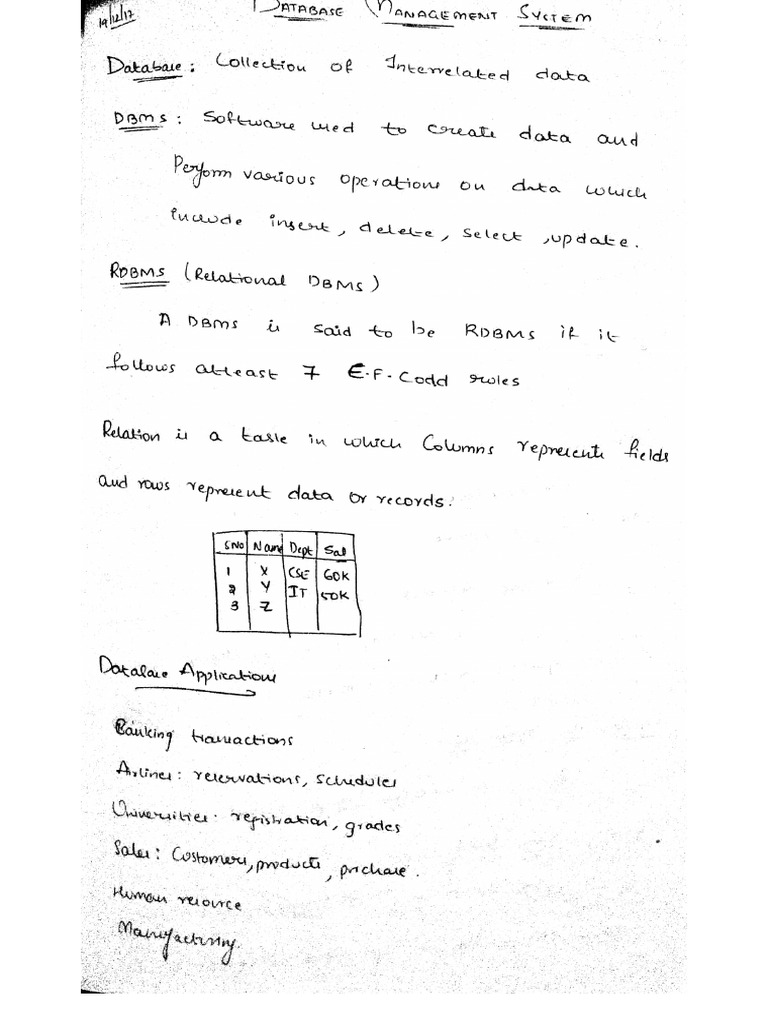 19/12/17
DATABASE MANAGEMENT SYSTEM
Database: Collection of Interrelated data
DBMS: Software used to create data and
Perform various operations on data which
include insert, delete, select, update.
RDBMS (Relational DBMS)
A DBMS is said to be RDBMS if it
follows atleast 7 E.F. Codd rules
Relation is a table in which Columns represents fields
and rows represent data or records.
SNo Name Dept Sal
1 X CSE 60K
2 Y IT 50K
3 Z
Database Applications
Banking transactions
Airlines: reservations, schedules
Universities: registration, grades
Sales: Customers, products, purchase.
Human resource
Manufacturing.